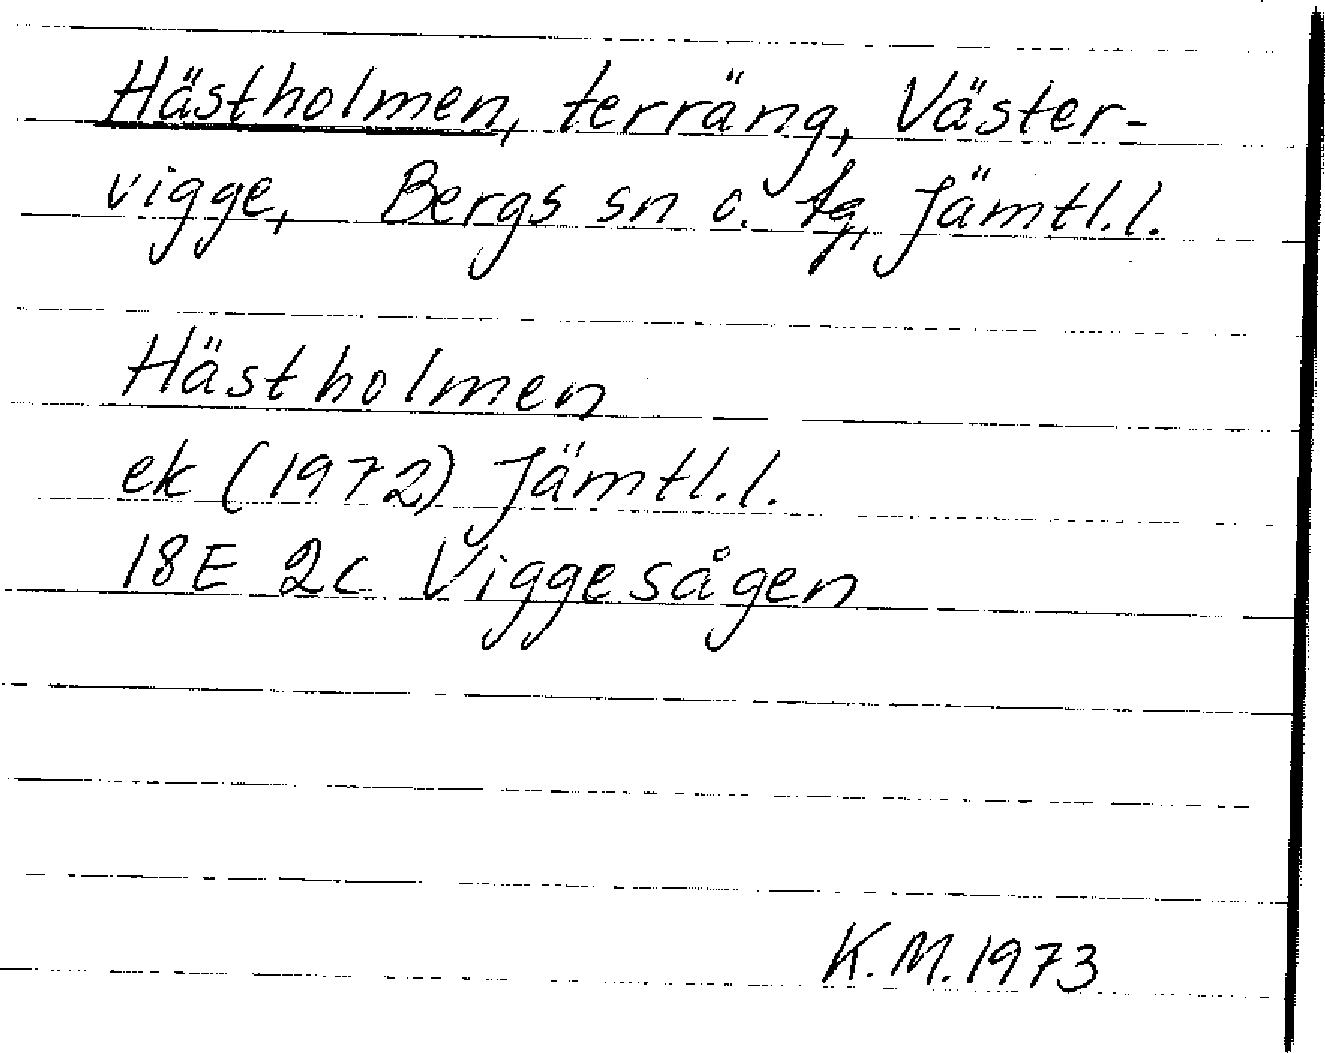 Hästholmen, terräng, Väster-
vigge, Bergs sn o. tg, Jämtl.l.
Hästholmen
ek (1972) Jämtl.l.
18E 2c Viggesågen
K.M. 1973